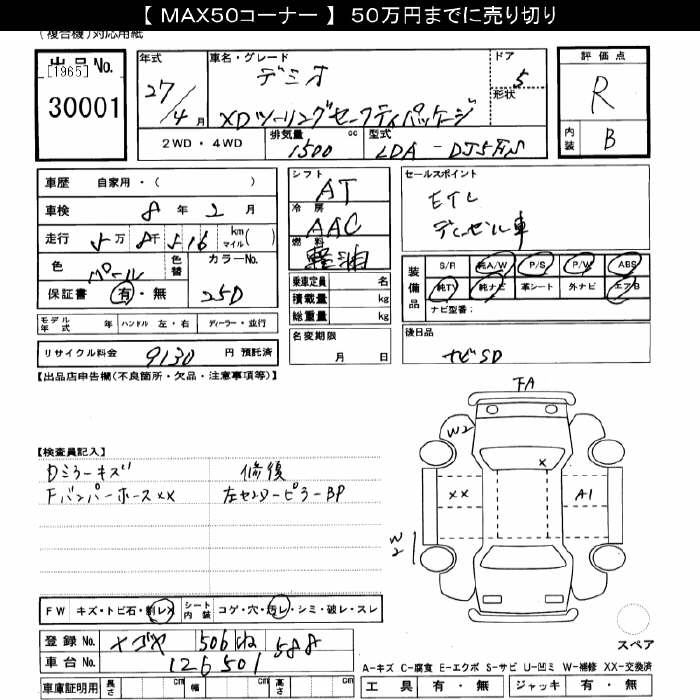 【 MAX50コーナー 】 50万円までに売り切り
(複合機)対応用紙
出品No. [1965] 30001
年式 27/4月
車名・グレード デミオ
XDツーリングセーフティパッケージ
ドア 5
形状
評価点 R
内装 B
2WD・4WD 排気量 1500 cc 型式 LDA-DJ5
車歴 自家用・( )
車検 8年 2月
走行 5万 8千 516 km マイル( )
色 パール 色替 カラーNo. 25D
保証書 有・無
シフト AT
冷房 AAC
燃料 軽油
乗車定員 名
積載量 kg
総重量 kg
名変期限 月 日
セールスポイント
ETC
ディーゼル車
装備品 S/R 純A/W P/S P/W ABS
純TV 純ナビ 革シート 外ナビ エアB
ナビ型番:
後日品
ナビSD
モデル年式 年 ハンドル 左・右 ディーラー・並行
リサイクル料金 9130 円 預託済
【出品店申告欄(不良箇所・欠品・注意事項等)】
【検査員記入】
Dミラーキズ 修復
Fバンパーホースxx 左センターピラーBP
FA
W2
x
xx
A1
W2
FW キズ・トビ石・割レX シート内装 コゲ・穴・汚レ・シミ・破レ・スレ
登録No. ナゴヤ 506 ね 588
車台No. 126501
車庫証明用 長さ cm 幅 cm 高さ cm
スペア
A-キズ C-腐食 E-エクボ S-サビ U-凹ミ W-補修 XX-交換済
工具 有・無 ジャッキ 有・無